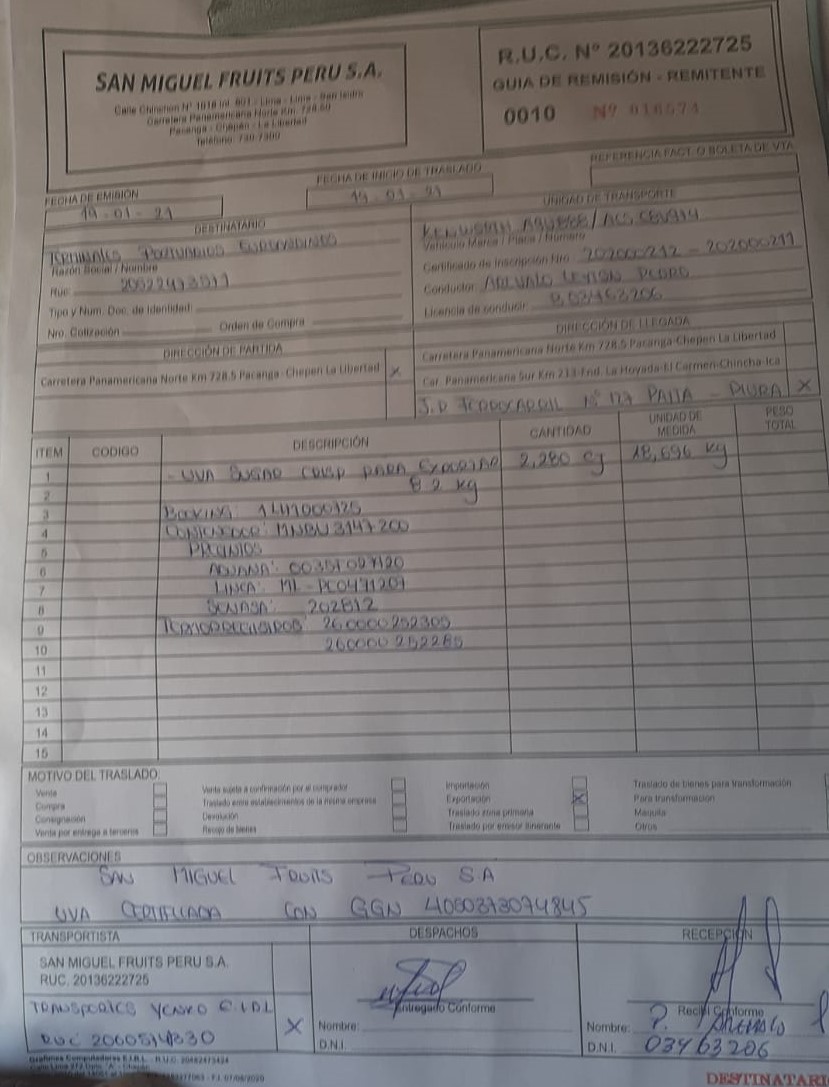 SAN MIGUEL FRUITS PERU S.A.
Calle Chinchon N° 1018 Int. 601 - Lima - Lima - San Isidro
Carretera Panamericana Norte Km. 728.50
Pacanga - Chepen - La Libertad
Teléfono: 730-7300
R.U.C. Nº 20136222725
GUIA DE REMISIÓN - REMITENTE
0010 Nº
REFERENCIA FACT. O BOLETA DE VTA
FECHA DE EMISIÓN
19-01-21
FECHA DE INICIO DE TRASLADO
19-01-21
DESTINATARIO
TERMINALES PORTUARIOS EUROANDINOS
Razón Social / Nombre
Ruc:
Tipo y Num. Doc. de Identidad:
Nro. Cotización Orden de Compra
UNIDAD DE TRANSPORTE
KENWORTH
Vehículo Marca / Placa / Número
Certificado de Inscripción Nro. 202000212 - 202000211
Conductor: AREVALO PEDRO
Licencia de conducir:
DIRECCIÓN DE PARTIDA
Carretera Panamericana Norte Km 728.5 Pacanga-Chepen La Libertad X
DIRECCIÓN DE LLEGADA
Carretera Panamericana Norte Km 728.5 Pacanga-Chepen La Libertad
Car. Panamericana Sur Km 213-Fnd. La Hoyada-El Carmen-Chincha-Ica
FERROCARRIL N° 127 PAITA - PIURA X
ITEM CODIGO DESCRIPCIÓN CANTIDAD UNIDAD DE MEDIDA PESO TOTAL
1 - UVA SUGAR CRISP PARA EXPORTAR 2,280 CJ 18,696 Kg
2 8.2 Kg
3 BOOKING:
4 CONTENEDOR: MNBU 3147200
5 PRECINTOS
6 ADUANA:
7 LINEA: ML-PE0471207
8 SENASA: 202812
9 TERMORREGISTROS: 260000252305
10 260000252285
11
12
13
14
15
MOTIVO DEL TRASLADO:
Venta
Compra
Consignación
Venta por entrega a terceros
Venta sujeta a confirmación por el comprador
Traslado entre establecimientos de la misma empresa
Devolución
Recojo de bienes
Importación
Exportación X
Traslado zona primaria
Traslado por emisor itinerante
Traslado de bienes para transformación
Para transformación
Maquila
Otros
OBSERVACIONES
SAN MIGUEL FRUITS PERU S.A
UVA CERTIFICADA CON GGN 4050373074845
TRANSPORTISTA
SAN MIGUEL FRUITS PERU S.A.
RUC. 20136222725
TRANSPORTES E.I.R.L
RUC X
DESPACHOS
Entregado Conforme
Nombre:
D.N.I.
RECEPCIÓN
Recibí Conforme
Nombre: P. AREVALO
D.N.I. 03463206
DESTINATARI